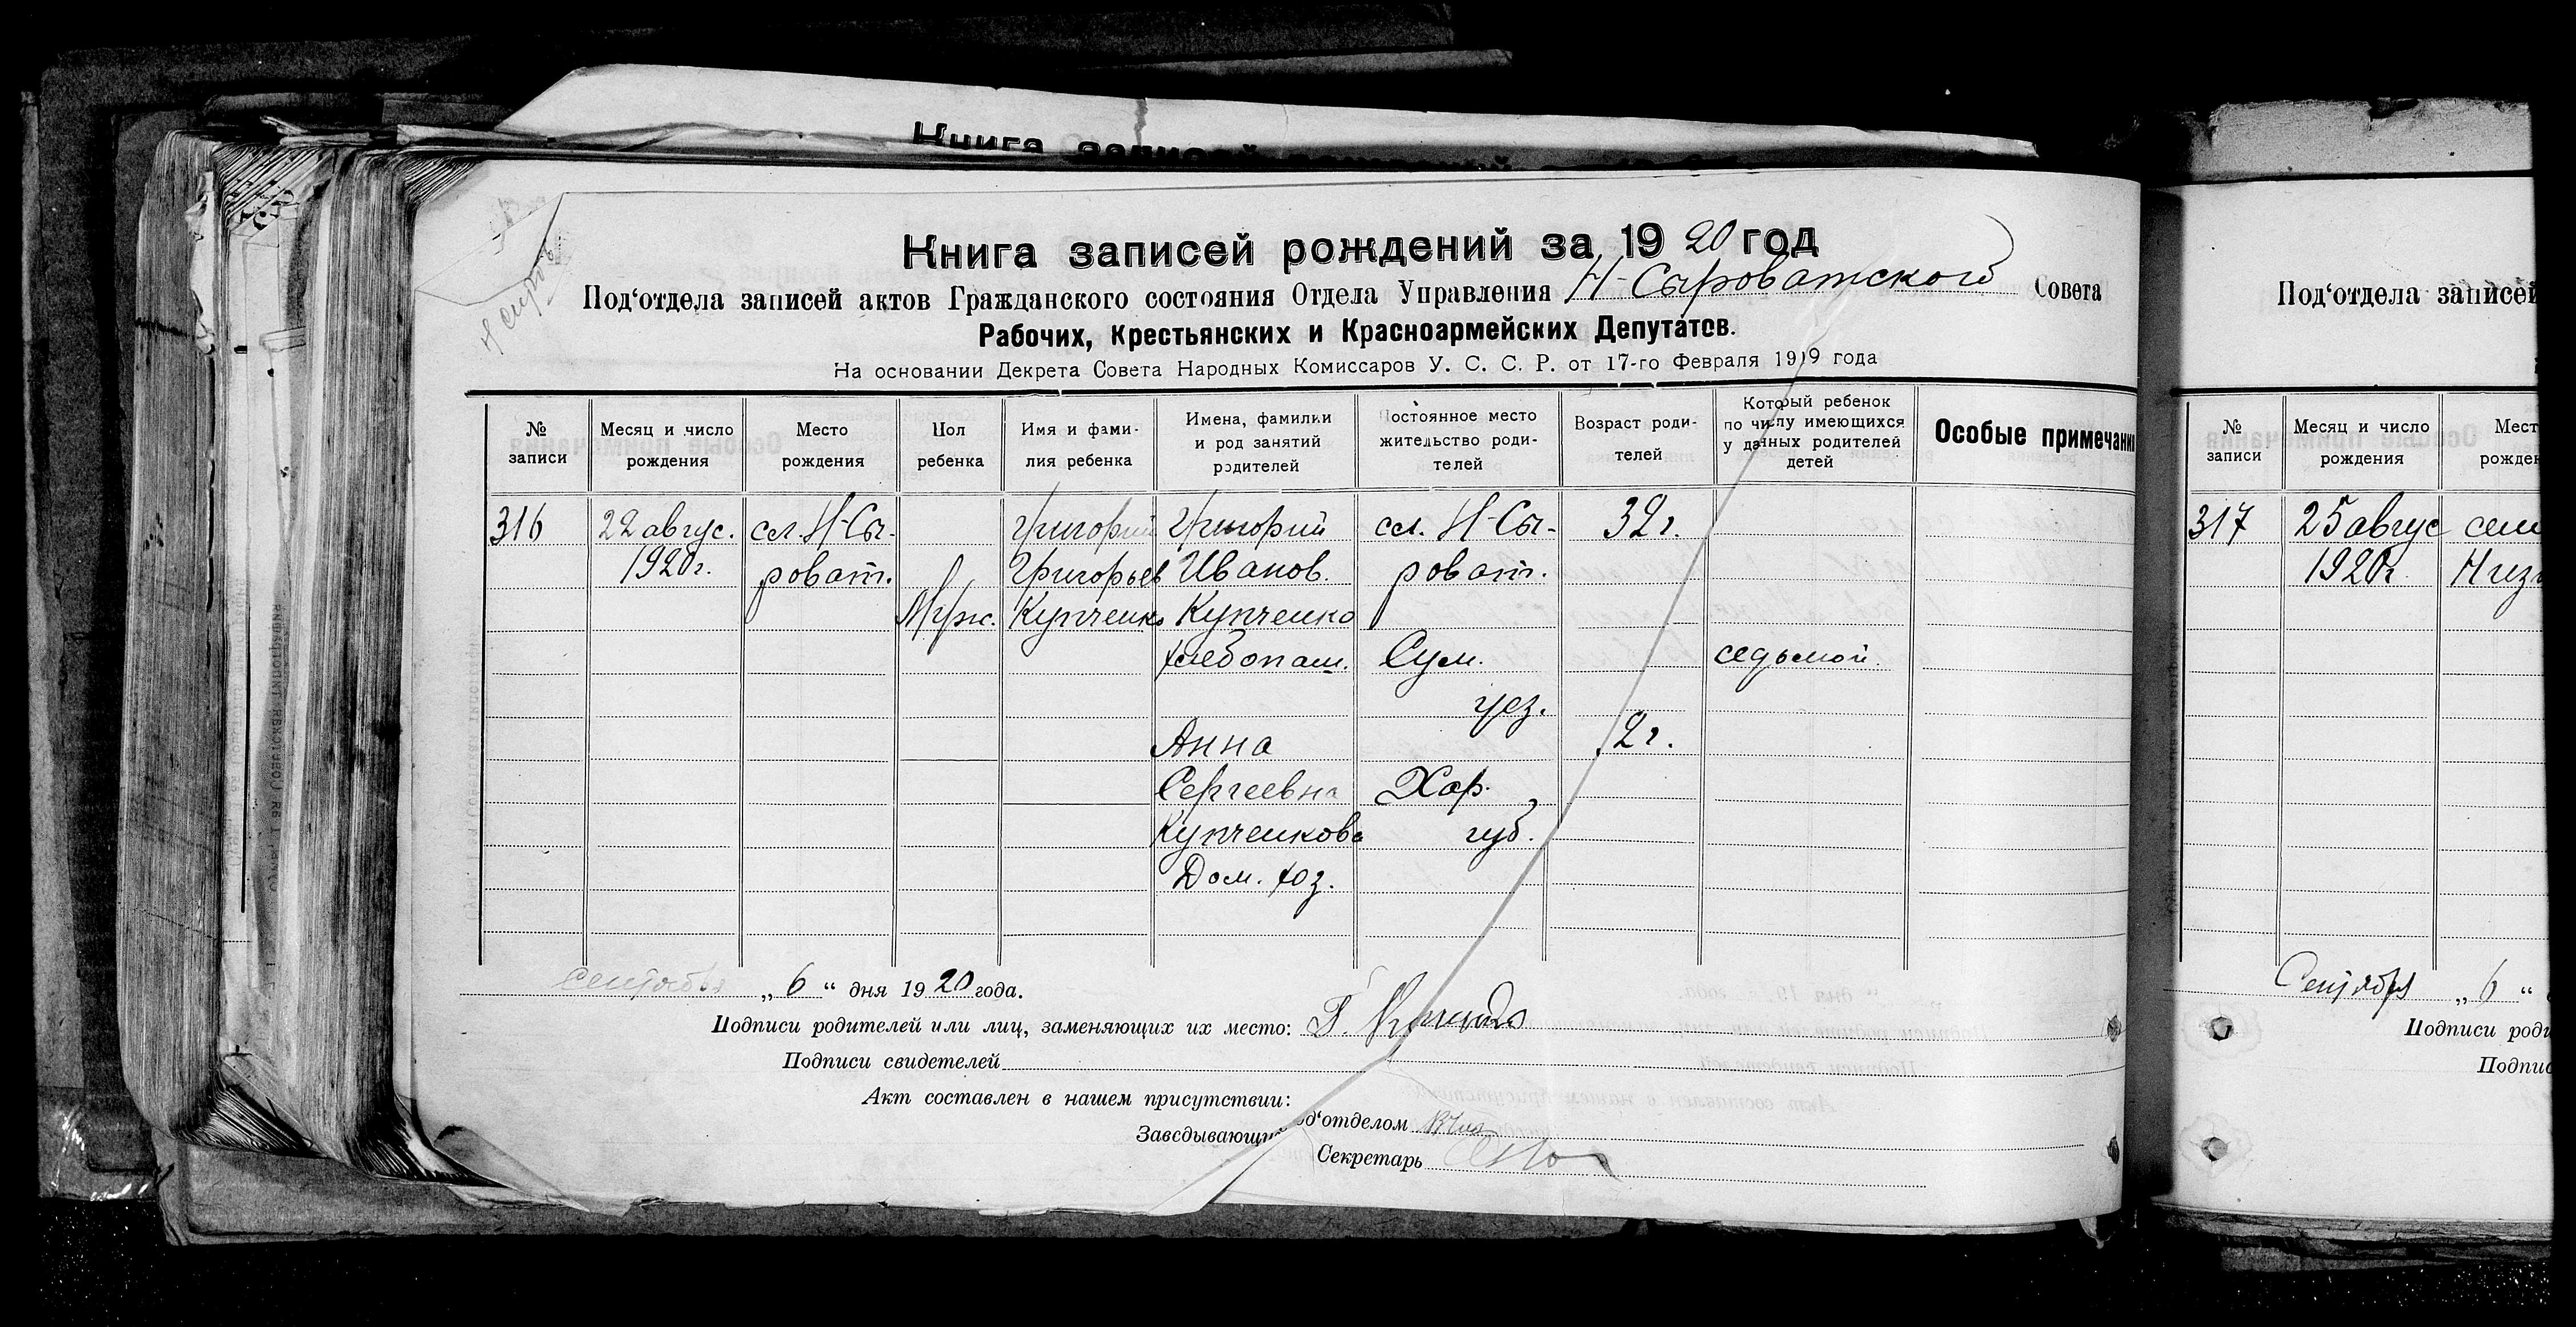 Книга записей
Н сиров
Книга записей рождений за 1920 год
Под'отдела записей актов Гражданского состояния Отдела Управления Н-Сыроватского Совета
Рабочих, Крестьянских и Красноармейских Депутатов.
На основании Декрета Совета Народных Комиссаров У. С. С. Р. от 17-го Февраля 1919 года
№ записи
Месяц и число рождения
Место рождения
Пол ребенка
Имя и фами-
лия ребенка
Имена, фамилии
и род занятий
родителей
Постоянное место
жительство роди-
телей
Возраст роди-
телей
Который ребенок
по числу имеющихся
у данных родителей
детей
Особые примечани
316
22 авгус.
1920г.
сл. Н-Сы-
роват.
Муж.
Григорий
Григорьев
Купченко
Григорий
Иванов.
Купченко
хлебопаш.
Анна
Сергеевна
Купченкова
Дом. хоз.
сл. Н-Сы-
роват.
Сум.
уез.
Хар.
губ.
32г.
2г.
седьмой.
Сентября „6“ дня 1920 года.
Подписи родителей или лиц, заменяющих их место: Г.
Подписи свидетелей
Акт составлен в нашем присутствии:
Заведывающий
од'отделом
Секретарь
Под'отдела записей
№ записи
Месяц и число рождения
Мест
рожден
317
25 авгус
1920г
Сентября „6“
Подписи роди
Подпис